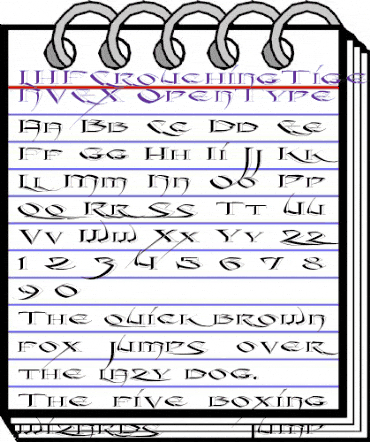 LHFCrouchingTige
NVCX OpenType
Aa Bb Cc Dd Ee
Ff Gg Hh Ii Jj Kk
Ll Mm Nn Oo Pp
Qq Rr Ss Tt Uu
Vv Ww Xx Yy Zz
1 2 3 4 5 6 7 8
9 0
The quick brown
fox jumps over
the lazy dog.
The five boxing
wizards jump